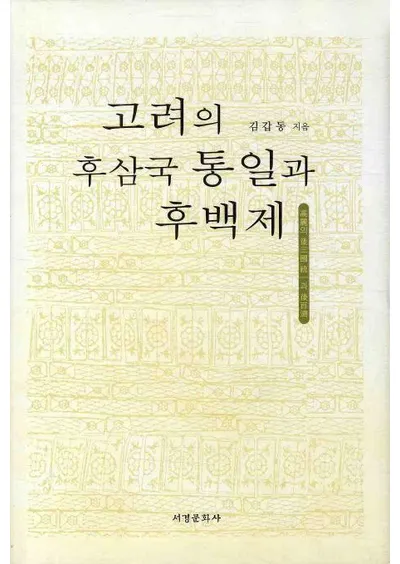 고려의
김갑동 지음
후삼국 통일과
후백제
高麗의 後三國 統一과 後百濟
서경문화사